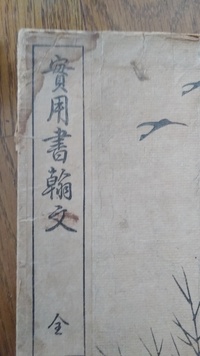 實用書翰文
全